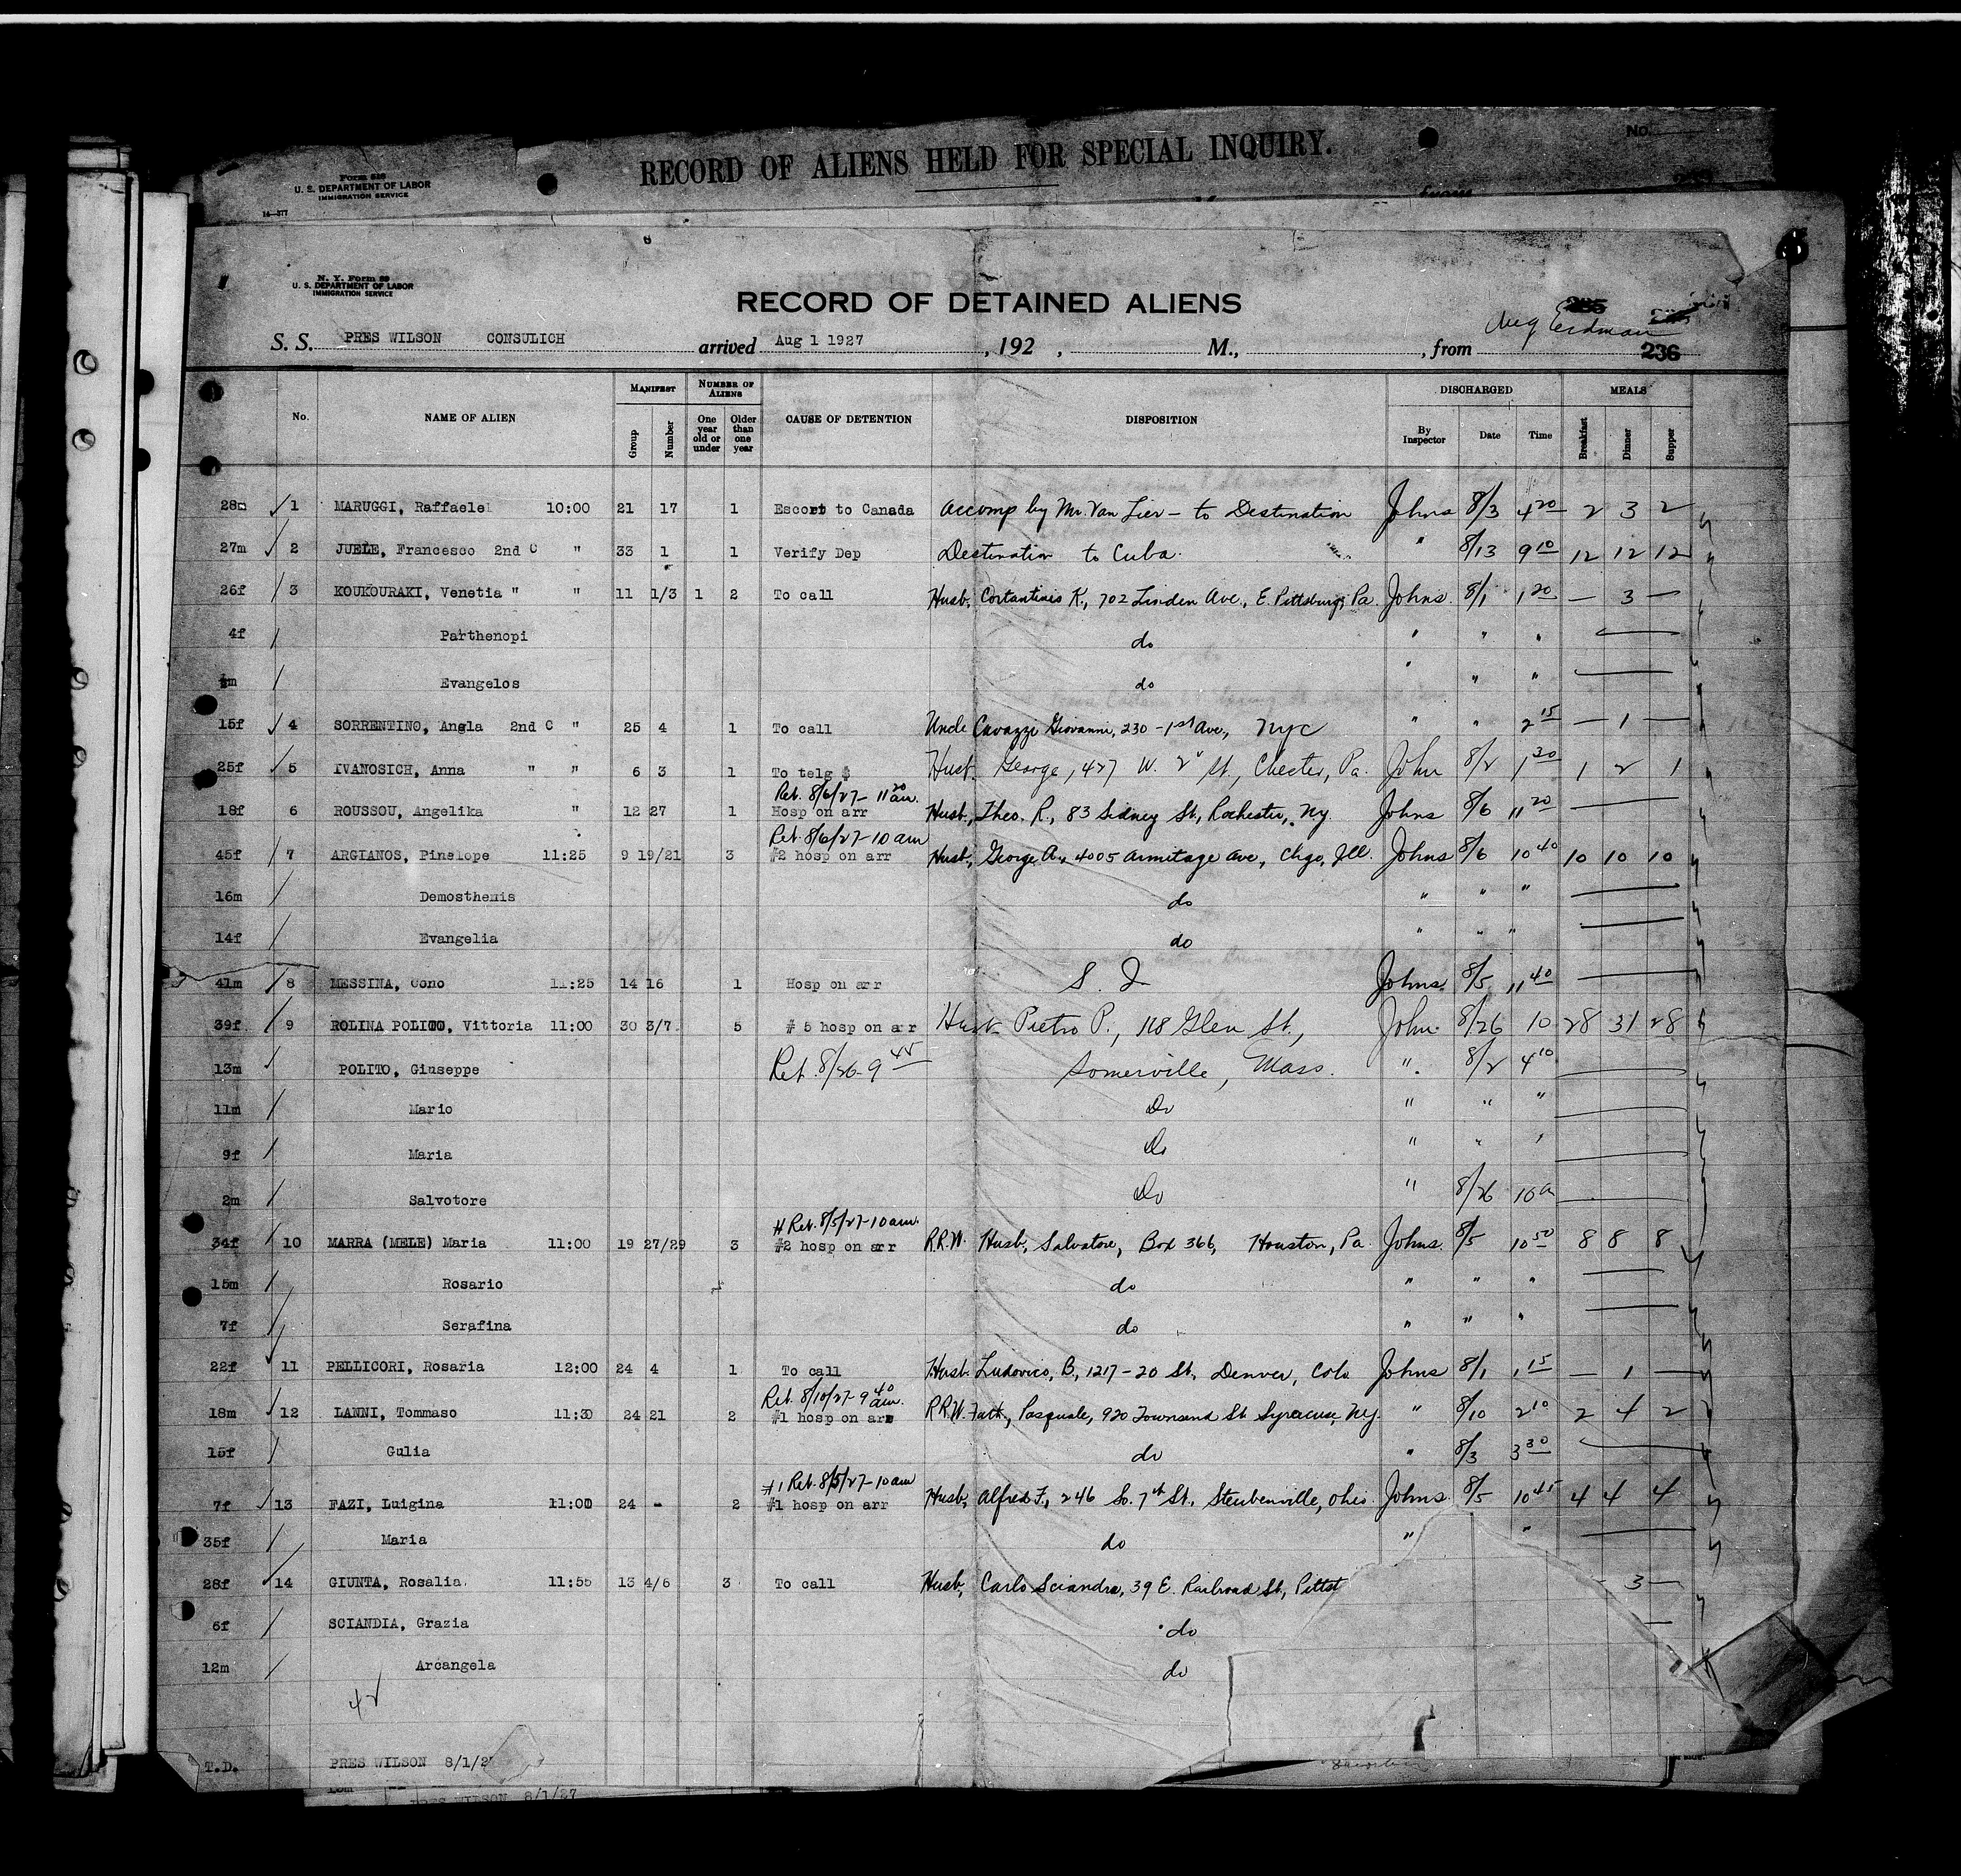 No.
RECORD OF ALIENS HELD FOR SPECIAL INQUIRY.
Form 518
U. S. DEPARTMENT OF LABOR
IMMIGRATION SERVICE
14—377
N. Y. Form 99
U. S. DEPARTMENT OF LABOR
IMMIGRATION SERVICE
RECORD OF DETAINED ALIENS
Aug Erdman
S. S. PRES WILSON CONSULICH arrived Aug 1 1927 , 192 , M., , from 236
MANIFEST NUMBER OF ALIENS DISCHARGED MEALS
No. NAME OF ALIEN Group Number One year old or under Older than one year CAUSE OF DETENTION DISPOSITION By Inspector Date Time Breakfast Dinner Supper
28m 1 MARUGGI, Raffaele 10:00 21 17 1 Escort to Canada Accomp by Mr. Van Lier — to Destination Johns 8/3 4 20 2 3 2
27m 2 JUELE, Francesco 2nd C " 33 1 1 Verify Dep Destination to Cuba. " 8/13 9 10 12 12 12
26f 3 KOUKOURAKI, Venetia " " 11 1/3 1 2 To call Husb, Costantinis K., 702 Linden Ave., E. Pittsburg, Pa. Johns. 8/1 1 20 — 3 —
4f Parthenopi do " " "
m Evangelos do " " "
15f 4 SORRENTINO, Angla 2nd C " 25 4 1 To call Uncle Cavazzi Giovanni, 230 - 1st Ave, NYC " " 2 15 — 1 —
25f 5 IVANOSICH, Anna " " 6 3 1 To telg $ Husb. George, 427 W. 2" St., Chester, Pa. John 8/2 1 20 1 2 1
Ret. 8/6/27 - 11 20 am.
18f 6 ROUSSOU, Angelika " 12 27 1 Hosp on arr Husb., Theo. R., 83 Sidney St., Rochester, NY. Johns 8/6 11 20 —
Ret. 8/6/27 - 10 am
45f 7 ARGIANOS, Pinelope 11:25 9 19/21 3 #2 hosp on arr Husb, George A., 4005 Armitage Ave, Chgo, Ill. Johns 8/6 10 40 10 10 10
16m Demosthenis do " " "
14f Evangelia do " " "
41m 8 MESSINA, Cono 11:25 14 16 1 Hosp on arr S. I Johns. 8/5 11 40 —
39f 9 ROLINA POLITO, Vittoria 11:00 30 3/7 5 # 5 hosp on arr Husb Pietro P., 118 Glen St., John. 8/26 10 28 31 28
13m POLITO, Giuseppe Ret. 8/26 - 9 45 Somerville, Mass. " 8/2 4 10
11m Mario Do " " "
9f Maria Do " " "
2m Salvotore Do " 8/26 10 a
# Ret. 8/5/27 - 10 am.
34f 10 MARRA (MELE) Maria 11:00 19 27/29 3 #2 hosp on arr R.R.W. Husb, Salvatore, Box 366, Houston, Pa. Johns. 8/5 10 50 8 8 8
15m Rosario do " " "
7f Serafina do " " "
22f 11 PELLICORI, Rosaria 12:00 24 4 1 To call Husb. Ludovico, B., 1217 - 20 St., Denver, Colo Johns 8/1 1 15 — 1 —
Ret. 8/10/27 - 9 40 am.
18m 12 IANNI, Tommaso 11:30 24 21 2 #1 hosp on arr R.R.W. Fath, Pasquale, 920 Townsend St Syracuse, NY. " 8/10 2 10 2 4 2
15f Gulia do " 8/3 3 30
#1 Ret. 8/5/27 - 10 am
7f 13 FAZI, Luigina 11:00 24 - 2 #1 hosp on arr Husb, Alfred F., 246 So. 7th St., Steubenville, Ohio. Johns. 8/5 10 45 4 4 4
35f Maria do " "
28f 14 GIUNTA, Rosalia. 11:55 13 4/6 3 To call Husb, Carlo Sciandra, 39 E. Railroad St, Pittst - 3 —
6f SCIANDIA, Grazia do
12m Arcangela do
42
T.D. PRES WILSON 8/1/2
PRES WILSON 8/1/27